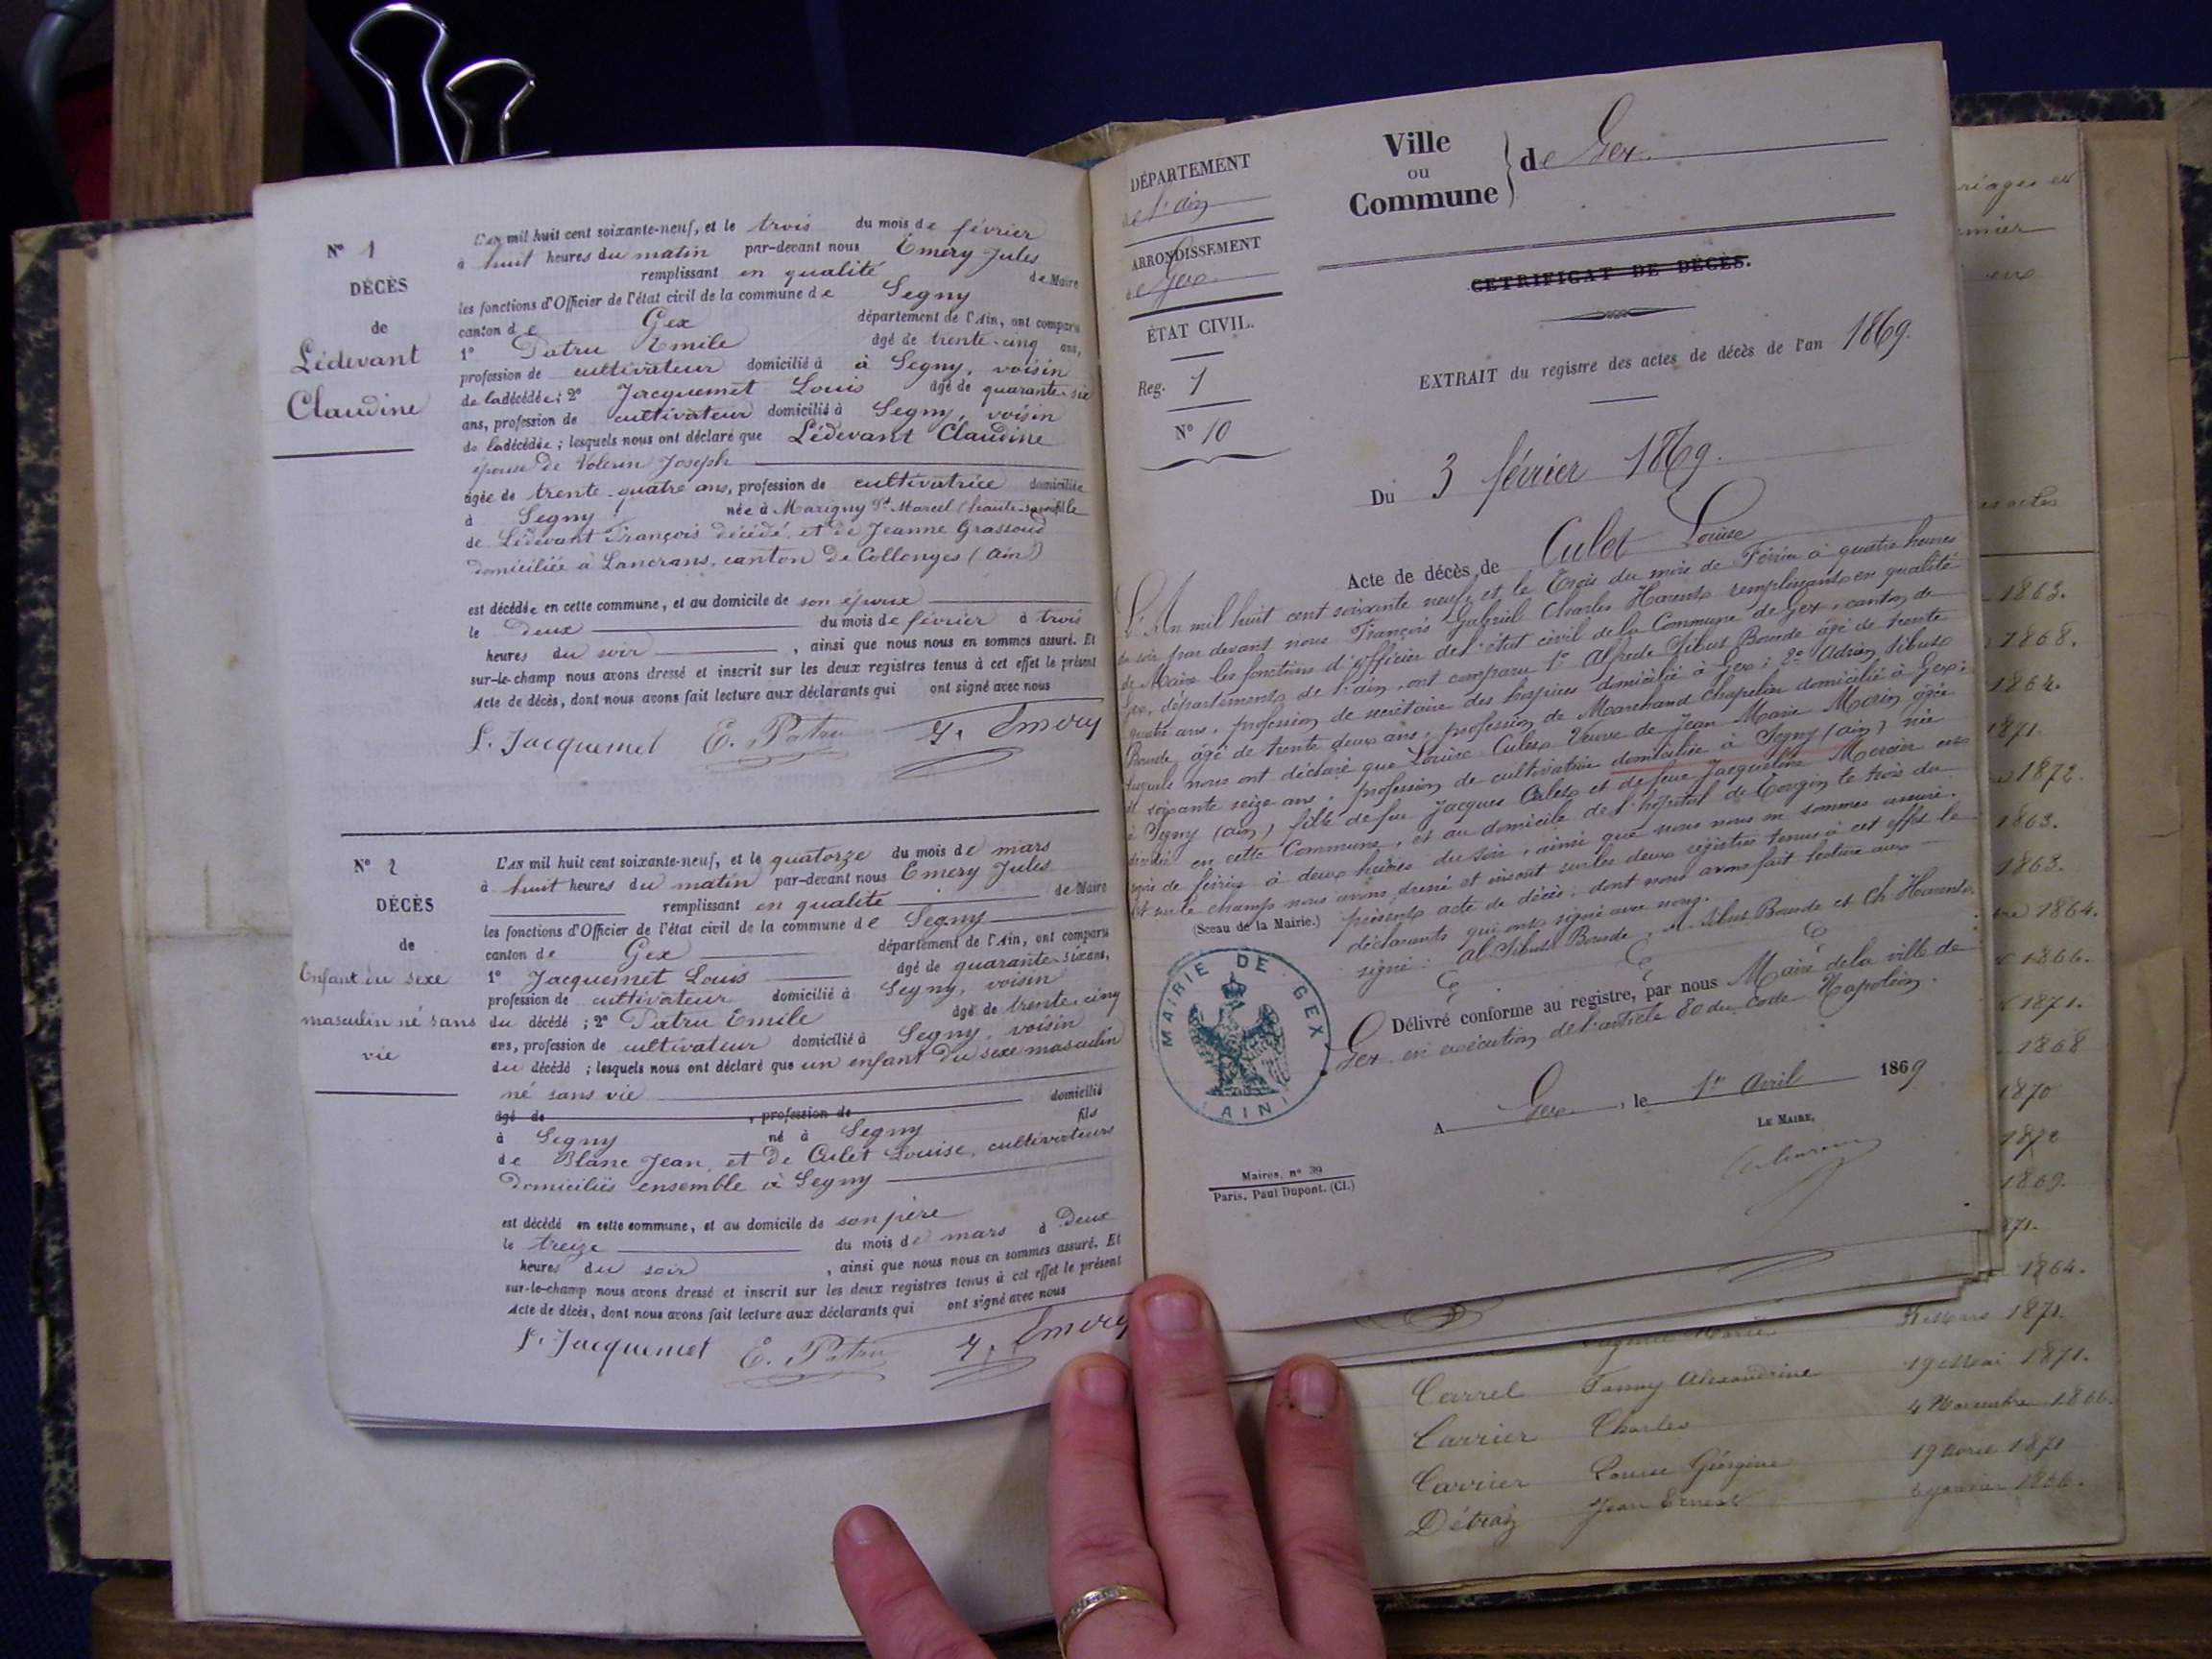 N° 1
DÉCÈS
de
Lédevant
Claudine
L'an mil huit cent soixante-neuf, et le trois du mois de février
à huit heures du matin par-devant nous Émery Jules
remplissant en qualité de Maire
les fonctions d'Officier de l'état civil de la commune de Segny
canton de Gex département de l'Ain, ont comparu
1° Patru Emile âgé de trente-cinq ans,
profession de cultivateur domicilié à à Segny, voisin
de la décédée; 2° Jacquemet Louis âgé de quarante-six
ans, profession de cultivateur domicilié à Segny, voisin
de la décédée; lesquels nous ont déclaré que Lédevant Claudine
épouse de Volerin Joseph
âgée de trente-quatre ans, profession de cultivatrice domiciliée
à Segny née à Marigny St Marcel (haute-savoie) fille
de Lédevant François décédé, et de Jeanne Grassoud
domiciliée à Lancrans, canton de Collonges (Ain)
est décédée en cette commune, et au domicile de son époux
le deux du mois de février à trois
heures du soir, ainsi que nous nous en sommes assuré. Et
sur-le-champ nous avons dressé et inscrit sur les deux registres tenus à cet effet le présent
Acte de décès, dont nous avons fait lecture aux déclarants qui ont signé avec nous
L. Jacquemet E. Patru J. Emery
N° 2
DÉCÈS
de
Enfant du sexe
masculin né sans
vie
L'an mil huit cent soixante-neuf, et le quatorze du mois de mars
à huit heures du matin par-devant nous Emery Jules
remplissant en qualité de Maire
les fonctions d'Officier de l'état civil de la commune de Segny
canton de Gex département de l'Ain, ont comparu
1° Jacquemet Louis âgé de quarante-six ans,
profession de cultivateur domicilié à Segny, voisin
du décédé; 2° Patru Emile âgé de trente-cinq
ans, profession de cultivateur domicilié à Segny, voisin
du décédé; lesquels nous ont déclaré que un enfant du sexe masculin
né sans vie
âgé de, profession de domicilié
à Segny né à Segny fils
de Blanc Jean, et de Culet Louise, cultivateurs
domiciliés ensemble à Segny
est décédé en cette commune, et au domicile de son père
le treize du mois de mars à deux
heures du soir, ainsi que nous nous en sommes assuré. Et
sur-le-champ nous avons dressé et inscrit sur les deux registres tenus à cet effet le présent
Acte de décès, dont nous avons fait lecture aux déclarants qui ont signé avec nous
L. Jacquemet E. Patru J. Emery
DÉPARTEMENT
de l'ain
ARRONDISSEMENT
de Gex
ÉTAT CIVIL.
Reg. 1
N° 10
Ville
ou
Commune
de Gex.
CETRIFICAT DE DÉCÈS.
EXTRAIT du registre des actes de décès de l'an 1869.
Du 3 février 1869.
Acte de décès de Culet Louise
L'An mil huit cent soixante neuf, et le Trois du mois de Février à quatre heures
du soir par devant nous François Gabriel Charles Harent remplissant en qualité
de Maire les fonctions d'officier de l'état civil de la Commune de Gex, canton de
Gex, département de l'ain, ont comparu 1° Alfrede Sibus Bounde âgé de trente
quatre ans, profession de secrétaire des hospices domicilié à Gex; 2° Adrien Sibus
Bounde âgé de trente deux ans, profession de Marchand Chapelier domicilié à Gex;
lesquels nous ont déclaré que Louise Culet Veuve de Jean Marie Morin âgée
de soixante seize ans, profession de cultivatrice domiciliée à Segny (ain) née
à Segny (ain) fille de feu Jacques Culet et de feue Jacqueline Mercier est
décédée en cette Commune, et au domicile de l'hôpital de Tougin le trois du
mois de février à deux heures du soir, ainsi que nous nous en sommes assuré.
Et sur le champ nous avons dressé et inscrit sur les deux registres tenus à cet effet le
présent acte de décès, dont nous avons fait lecture aux
déclarants qui ont signé avec nous.
signé: Al. Sibus Bounde, A. Sibus Bounde et Ch Harent.
(Sceau de la Mairie.)
MAIRIE DE GEX
(AIN)
Délivré conforme au registre, par nous Maire de la ville de
Gex en exécution de l'article 80 du Code Napoléon.
A Gex, le 1er Avril 1869
LE MAIRE,
Maires, n° 39
Paris, Paul Dupont. (Cl.)
1863.
1868.
1864.
1871.
1872.
1863.
1863.
1864.
1866.
1871.
1868
1870
1872
1869.
1864.
1871.
Carrel Fanny Alexandrine 19 Mai 1871.
Carrier Charles 4 Novembre 1866.
Carrier Louise Géorgine 19 Avril 1871
Détraz Jean Ernest janvier 1866.